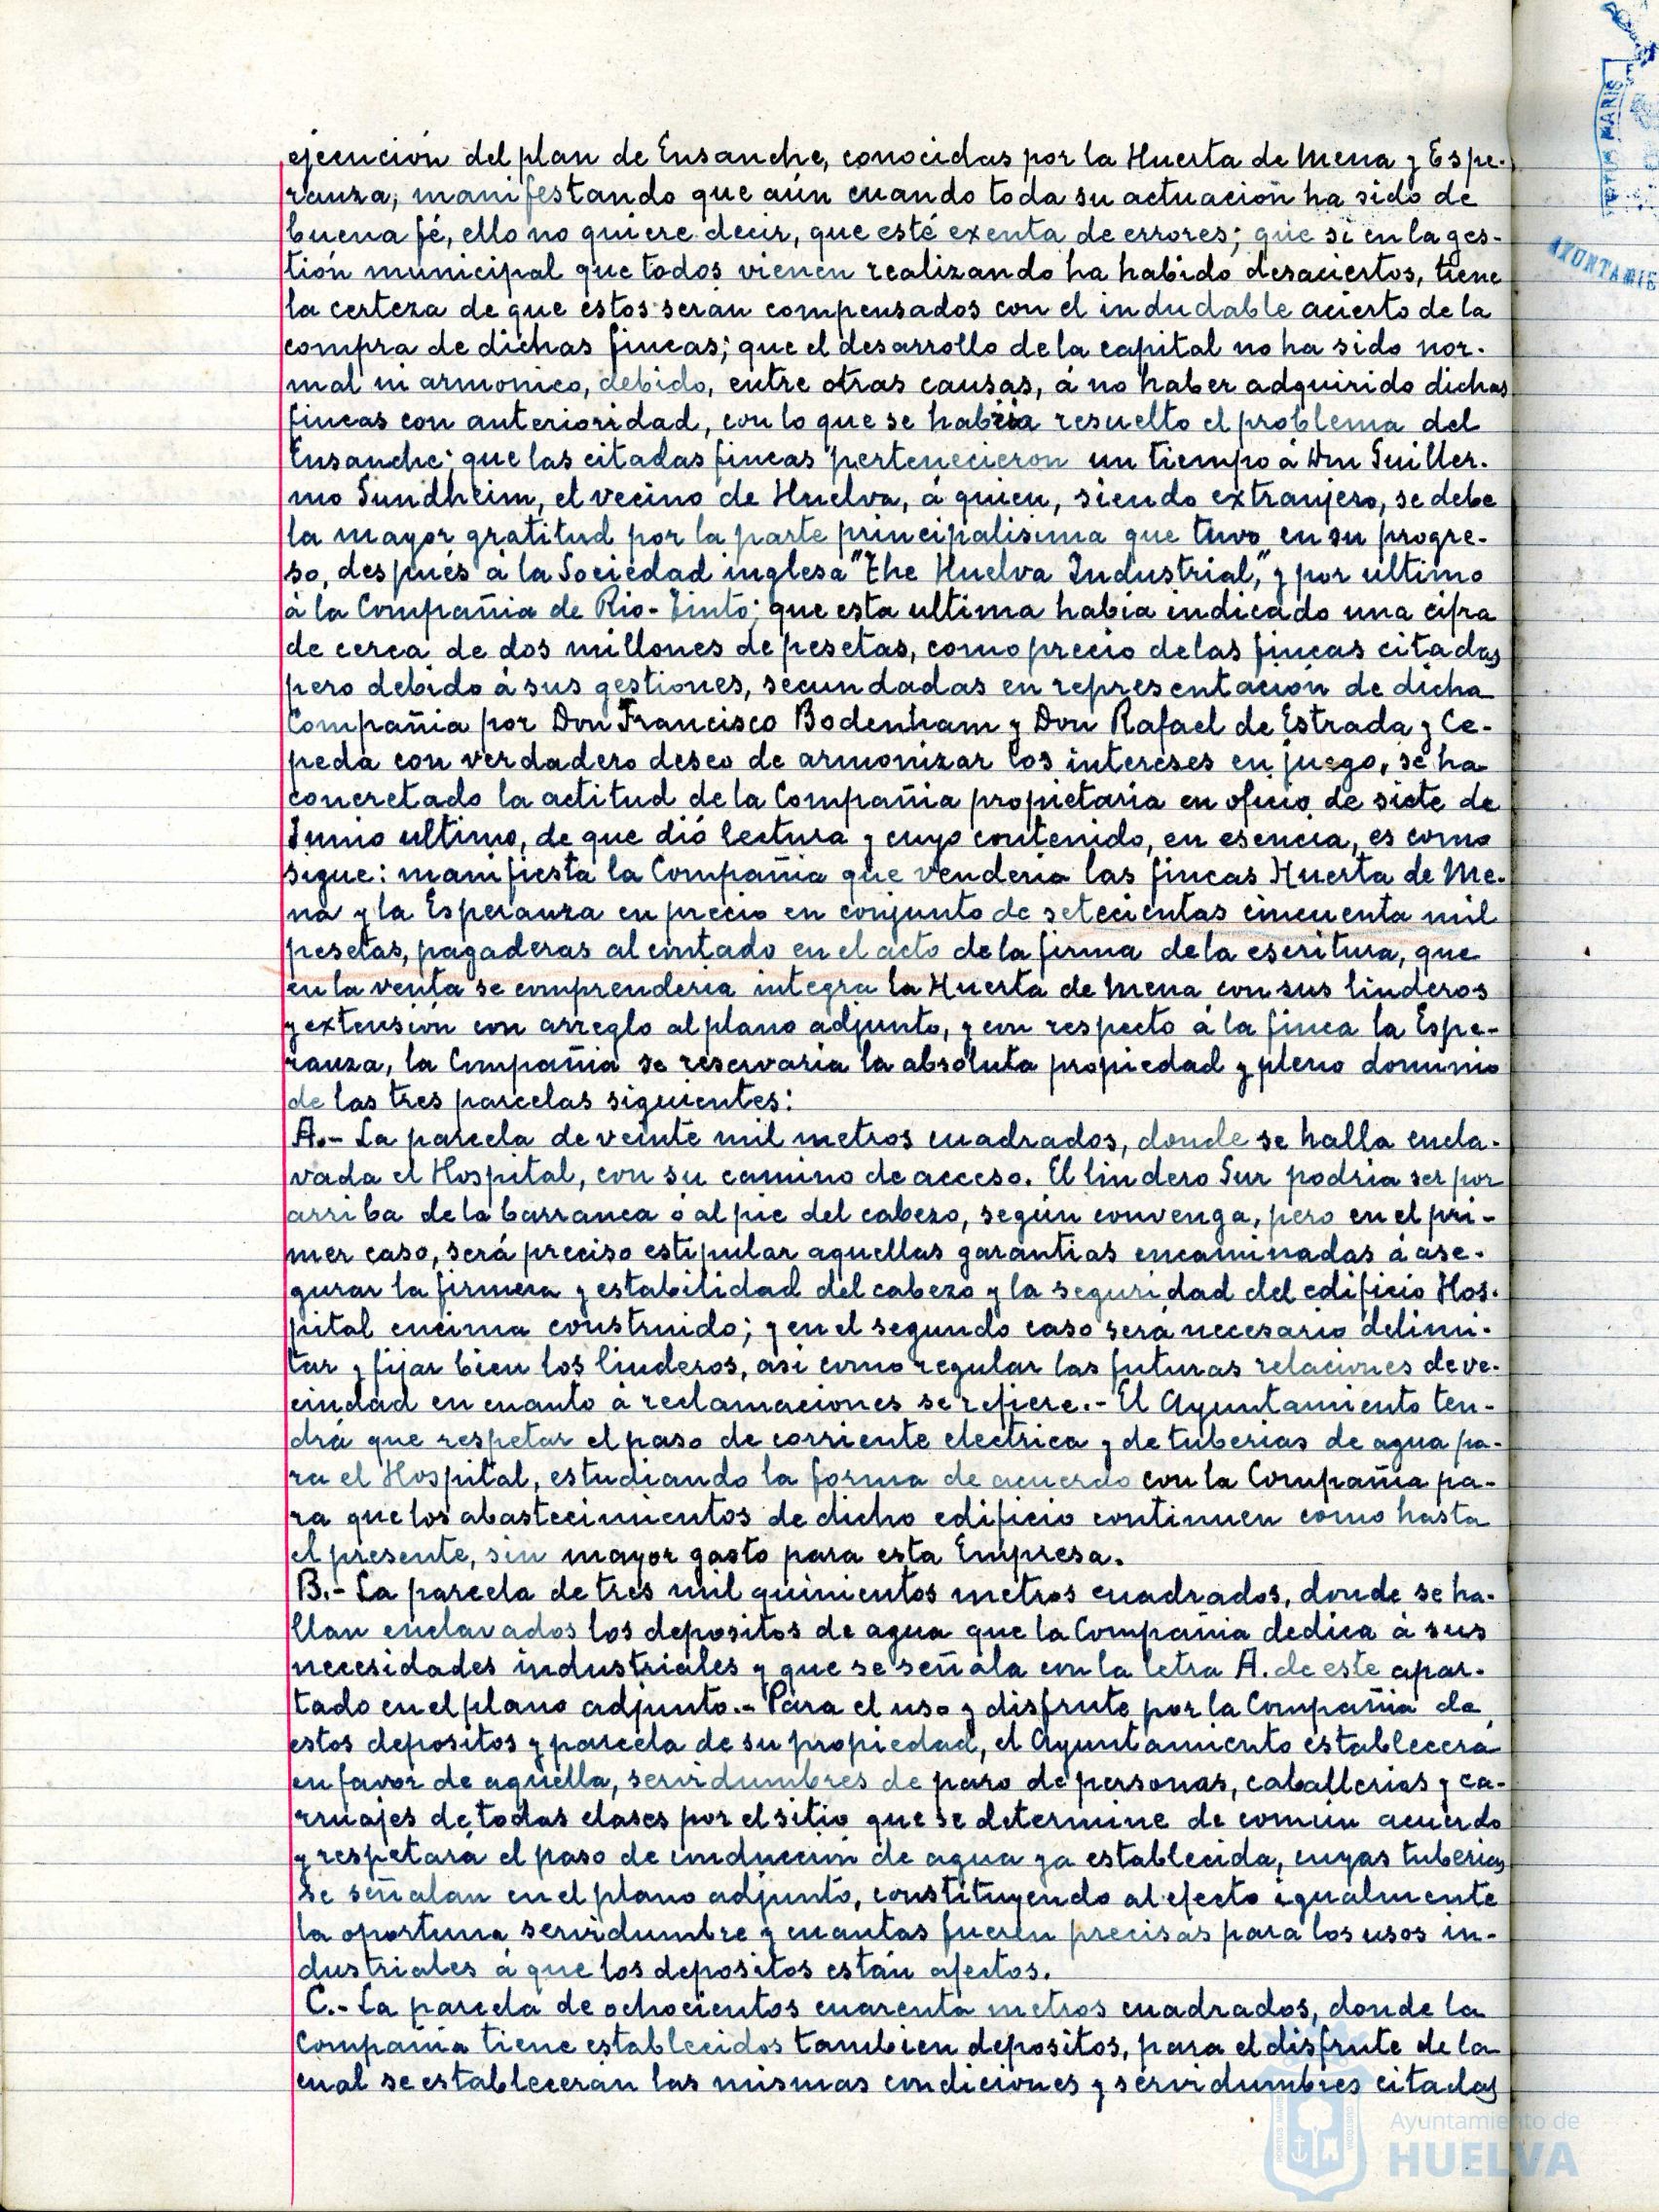 ejecución del plan de Ensanche, conocidas por la Huerta de Mena y Espe-
ranza, manifestando que aún cuando toda su actuación ha sido de
buena fé, ello no quiere decir, que esté exenta de errores; que si en la ges-
tión municipal que todos vienen realizando ha habido desaciertos, tiene
la certeza de que estos serán compensados con el indudable acierto de la
compra de dichas fincas; que el desarrollo de la capital no ha sido nor-
mal ni armonico, debido, entre otras causas, á no haber adquirido dichas
fincas con anterioridad, con lo que se habria resuelto el problema del
Ensanche; que las citadas fincas pertenecieron un tiempo á Don Guiller-
mo Sundheim, el vecino de Huelva, á quien, siendo extranjero, se debe
la mayor gratitud por la parte principalisima que tuvo en su progre-
so, después á la Sociedad inglesa "The Huelva Industrial," y por ultimo
á la Compañia de Rio-Tinto; que esta ultima había indicado una cifra
de cerca de dos millones de pesetas, como precio de las fincas citadas
pero debido á sus gestiones, secundadas en representación de dicha
Compañia por Don Francisco Bodenham y Don Rafael de Estrada y Ce-
peda con verdadero deseo de armonizar los intereses en juego, se ha
concretado la actitud de la Compañia propietaria en oficio de siete de
Junio ultimo, de que dió lectura y cuyo contenido, en esencia, es como
sigue: manifiesta la Compañia que venderia las fincas Huerta de Me-
na y la Esperanza en precio en conjunto de setecientas cincuenta mil
pesetas, pagaderas al contado en el acto de la firma de la escritura, que
en la venta se comprenderia integra la Huerta de Mena con sus linderos
y extensión con arreglo al plano adjunto, y con respecto á la finca la Espe-
ranza, la Compañia se reservaria la absoluta propiedad y pleno dominio
de las tres parcelas siguientes:
A.- La parcela de veinte mil metros cuadrados, donde se halla encla-
vada el Hospital, con su camino de acceso. El lindero Sur podria ser por
arriba de la barranca ó al pie del cabezo, según convenga, pero en el pri-
mer caso, será preciso estipular aquellas garantias encaminadas á ase-
gurar la firmeza y estabilidad del cabezo y la seguridad del edificio Hos-
pital encima construido; y en el segundo caso será necesario delimi-
tar y fijar bien los linderos, asi como regular las futuras relaciones de ve-
cindad en cuanto á reclamaciones se refiere.- El Ayuntamiento ten-
drá que respetar el paso de corriente electrica y de tuberias de agua pa-
ra el Hospital, estudiando la forma de acuerdo con la Compañia pa-
ra que los abastecimientos de dicho edificio continuen como hasta
el presente, sin mayor gasto para esta Empresa.
B.- La parcela de tres mil quinientos metros cuadrados, donde se ha-
llan enclavados los depositos de agua que la Compañia dedica á sus
necesidades industriales y que se señala con la letra A. de este apar-
tado en el plano adjunto.- Para el uso y disfrute por la Compañia de
estos depositos y parcela de su propiedad, el Ayuntamiento establecerá
en favor de aquella, servidumbres de paso de personas, caballerias y ca-
rruajes de todas clases por el sitio que se determine de común acuerdo
y respetará el paso de conducción de agua ya establecida, cuyas tuberias
se señalan en el plano adjunto, constituyendo al efecto igualmente
la oportuna servidumbre y cuantas fueren precisas para los usos in-
dustriales á que los depositos están afectos.
C.- La parcela de ochocientos cuarenta metros cuadrados, donde la
Compañia tiene establecidos tambien depositos, para el disfrute de la
cual se estableceran las mismas condiciones y servidumbres citadas
Ayuntamiento de
HUELVA